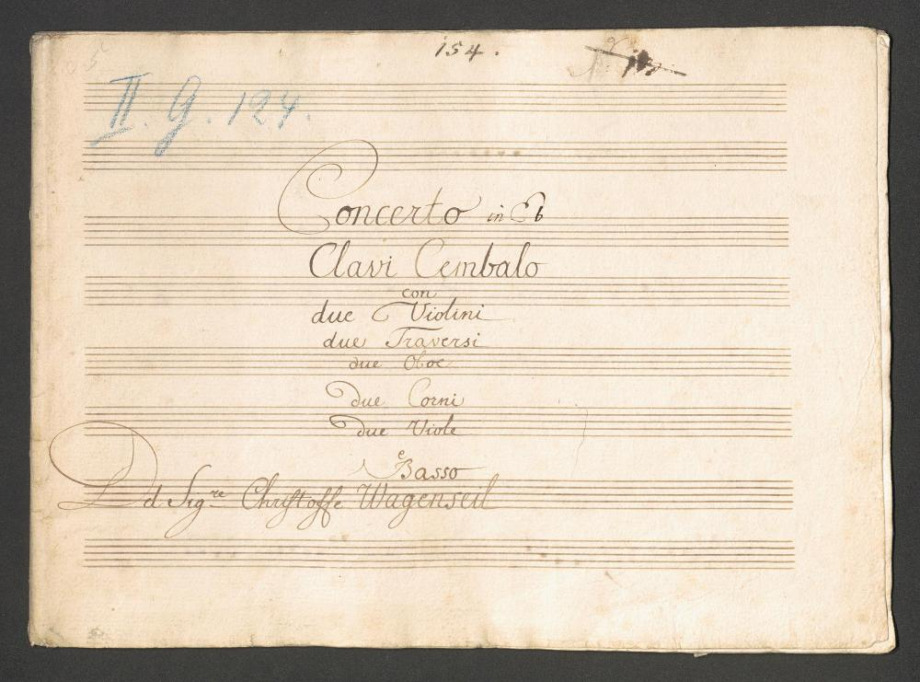 154.
II. G. 124.
Concerto in Eb
Clavi Cembalo
con
due Violini
due Traversi
due Oboe
due Corni
due Viole
e
Basso
Del Sigre Christoffe Wagenseil